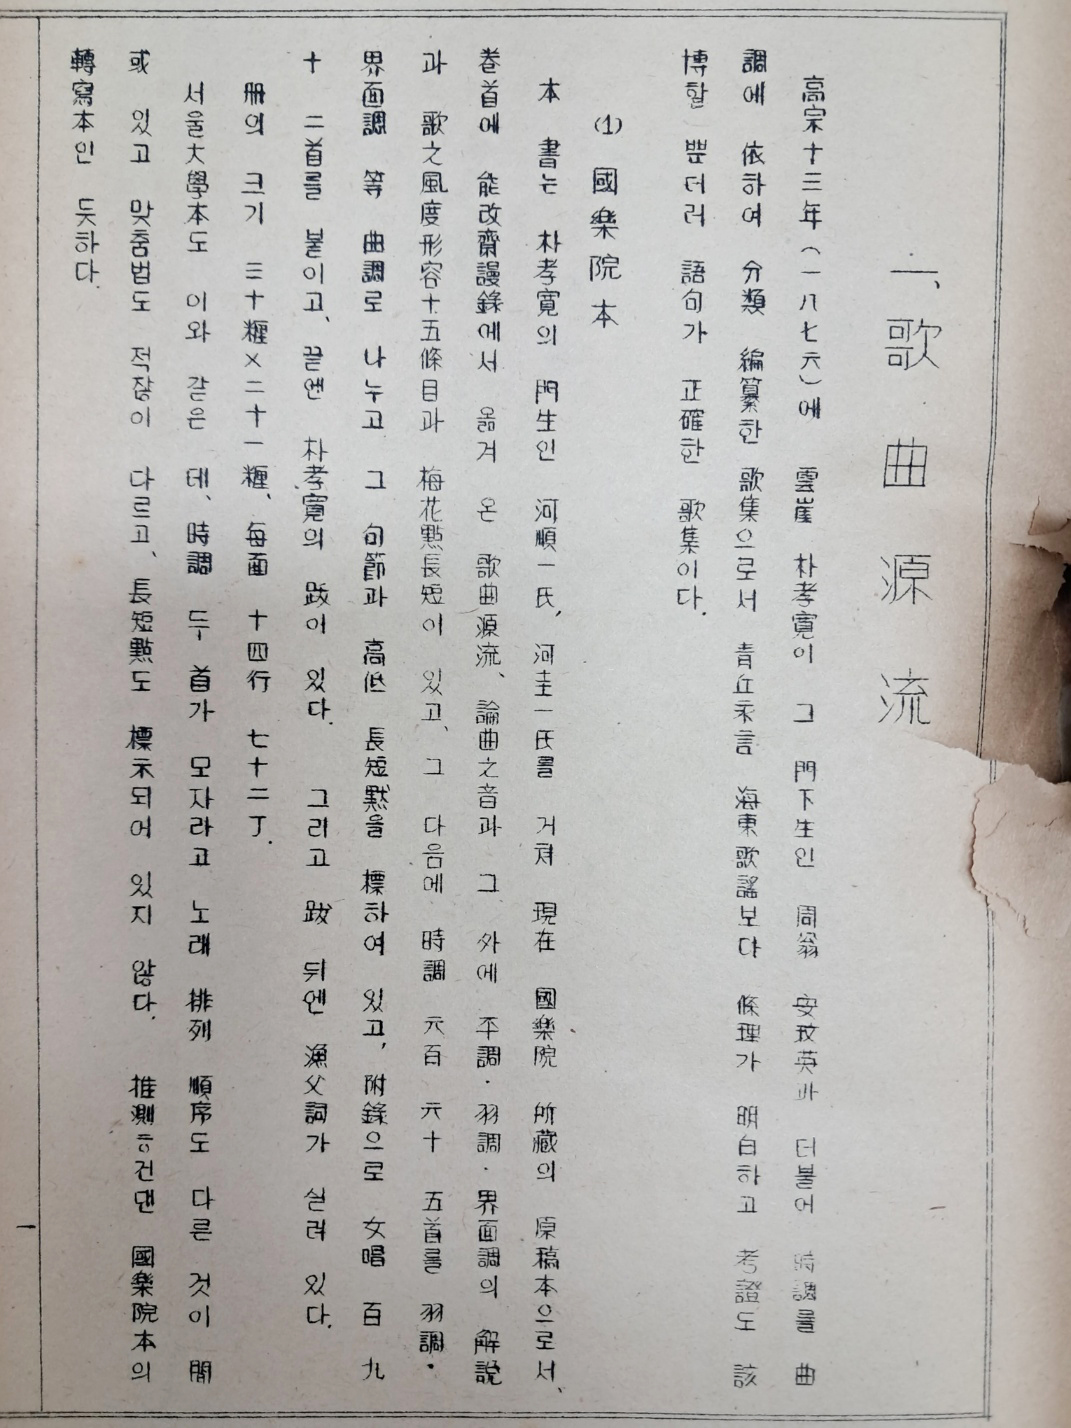 一、歌曲源流
高宗十三年(一八七六)에 雲崖 朴孝寬이 그 門下生인 周翁 安玟英과 더불어 時調를 曲
調에 依하여 分類 編纂한 歌集으로서 靑丘永言 海東歌謠보다 條理가 明白하고 考證도 該
博할 뿐더러 語句가 正確한 歌集이다.
(1) 國樂院本
本 書는 朴孝寬의 門生인 河順一氏, 河圭一氏를 거쳐 現在 國樂院 所藏의 原稿本으로서、
卷首에 能改齋謾錄에서 옮겨 온 歌曲源流、論曲之音과 그 外에 平調·羽調·界面調의 解說
과 歌之風度形容十五條目과 梅花點長短이 있고、그 다음에 時調 六百 六十 五首를 羽調·
界面調 等 曲調로 나누고 그 句節과 高低 長短點을 標하여 있고, 附錄으로 女唱 百 九
十 二首를 붙이고、끝엔 朴孝寬의 跋이 있다. 그리고 跋 뒤엔 漁父詞가 실려 있다.
冊의 크기 三十糎×二十一糎、每面 十四行 七十二丁.
서울大學本도 이와 같은 데、時調 두 首가 모자라고 노래 排列 順序도 다른 것이 間
或 있고 맞춤법도 적잖이 다르고、長短點도 標示되어 있지 않다. 推測ㅎ건댄 國樂院本의
轉寫本인 듯하다.
一